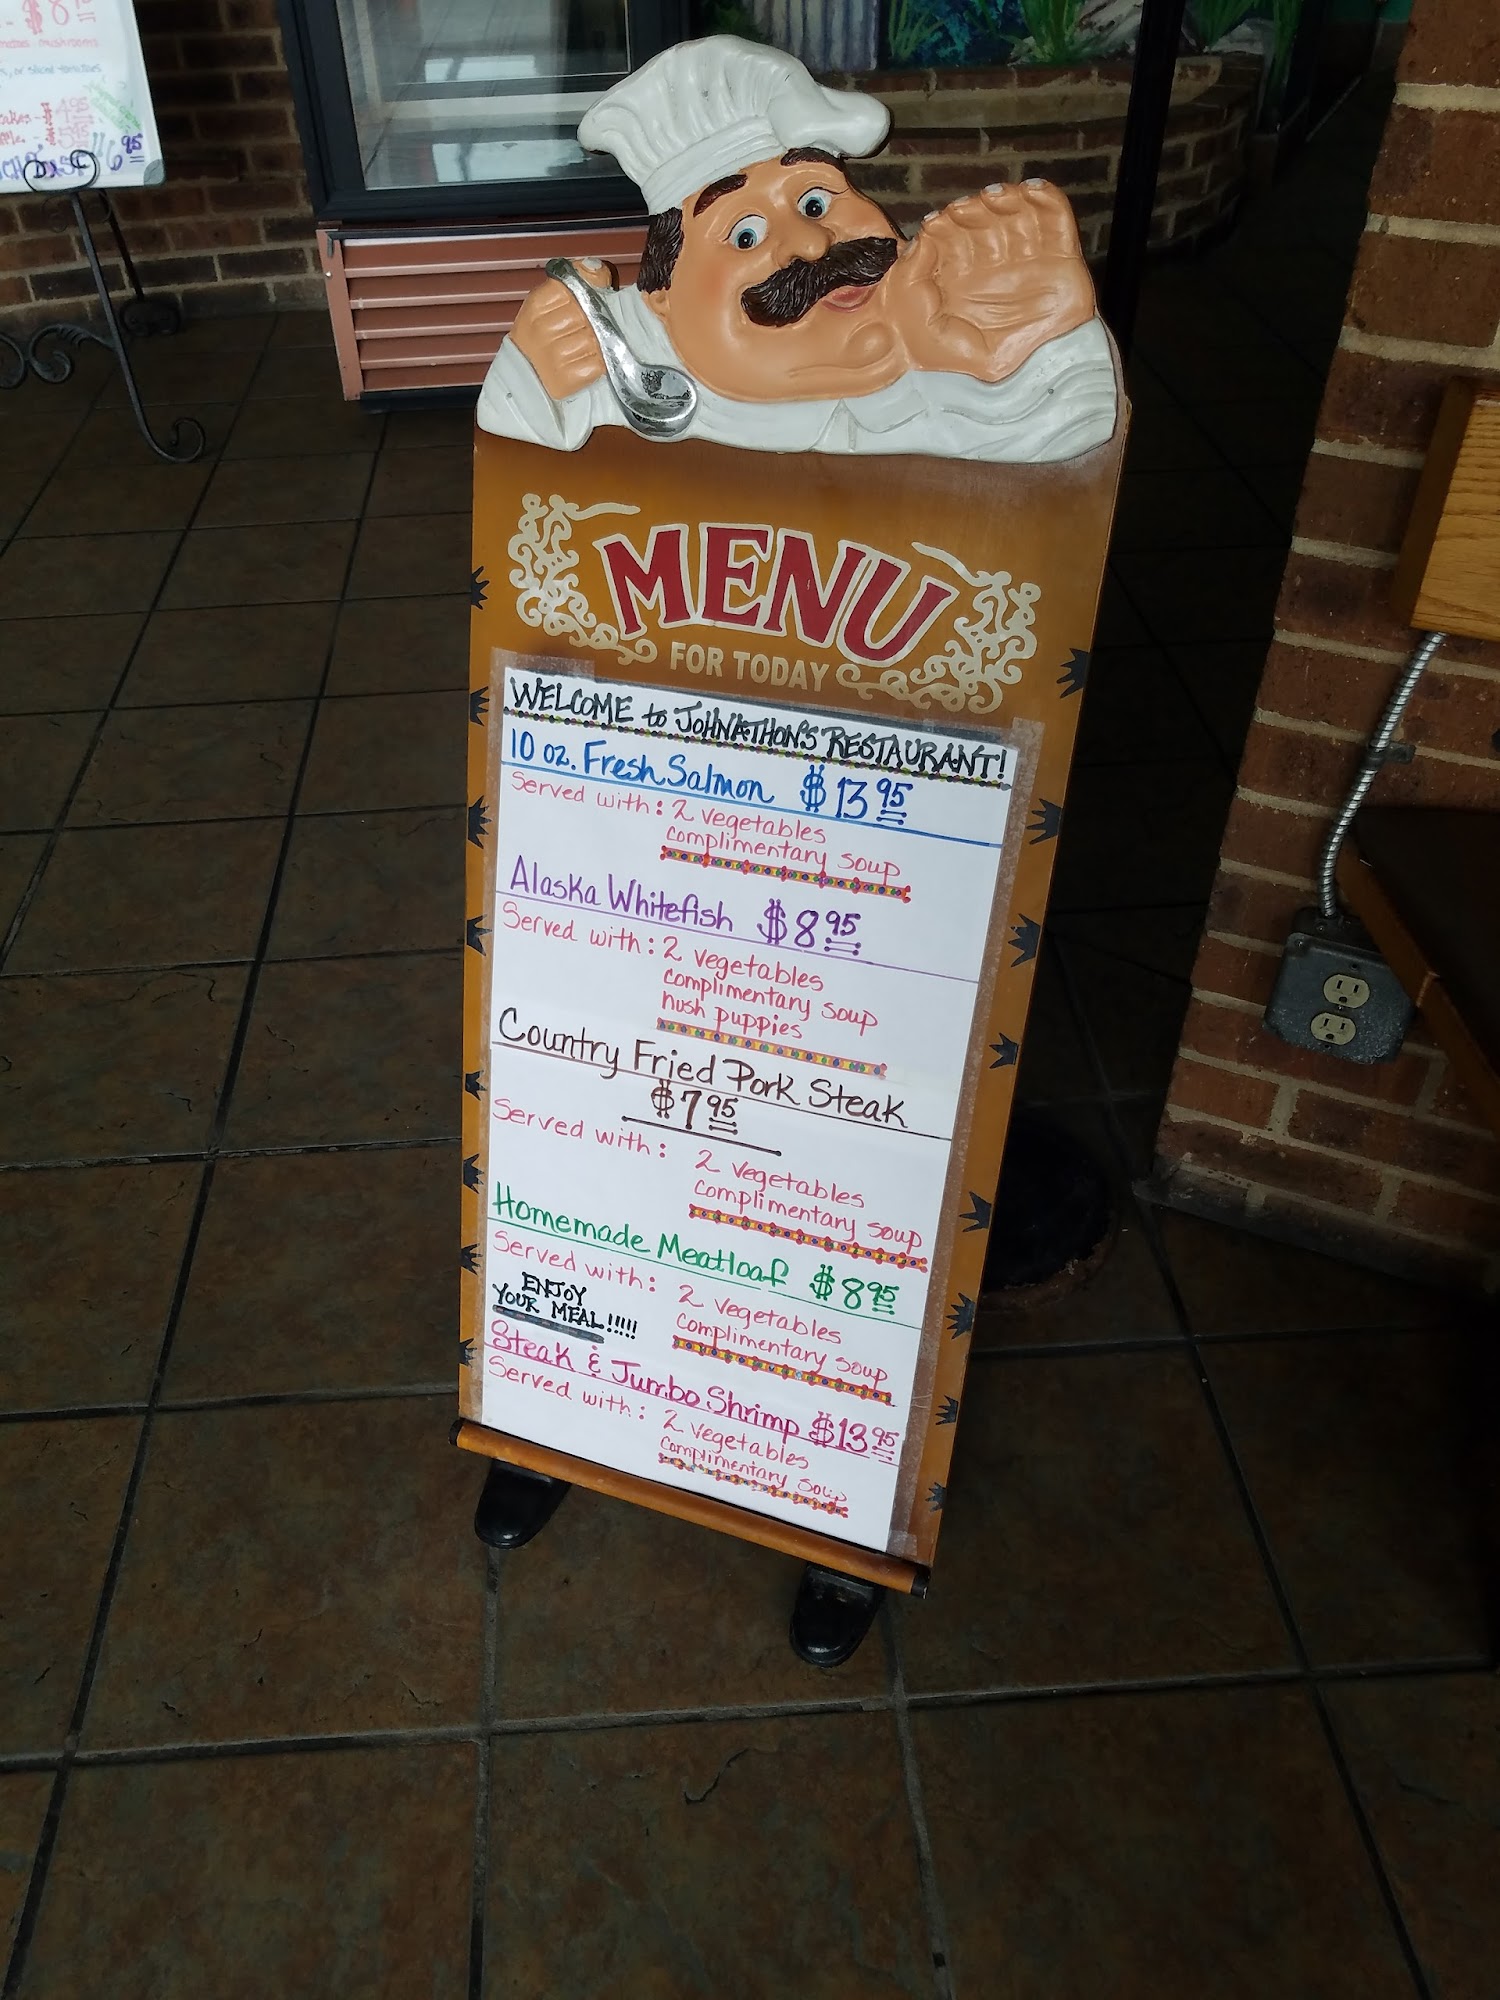 $8
mushrooms
, or sliced tomatoes
akes - $4.95
ffle. - $5.95
$6.95
MENU
FOR TODAY
WELCOME to JOHNATHON'S RESTAURANT!
10 oz. Fresh Salmon $13.95
Served with: 2 vegetables
complimentary soup
Alaska Whitefish $8.95
Served with: 2 vegetables
complimentary soup
hush puppies
Country Fried Pork Steak
$7.95
Served with: 2 vegetables
complimentary soup
Homemade Meatloaf $8.95
Served with: 2 vegetables
complimentary soup
ENJOY
YOUR MEAL!!!!!
Steak & Jumbo Shrimp $13.95
Served with: 2 vegetables
complimentary soup